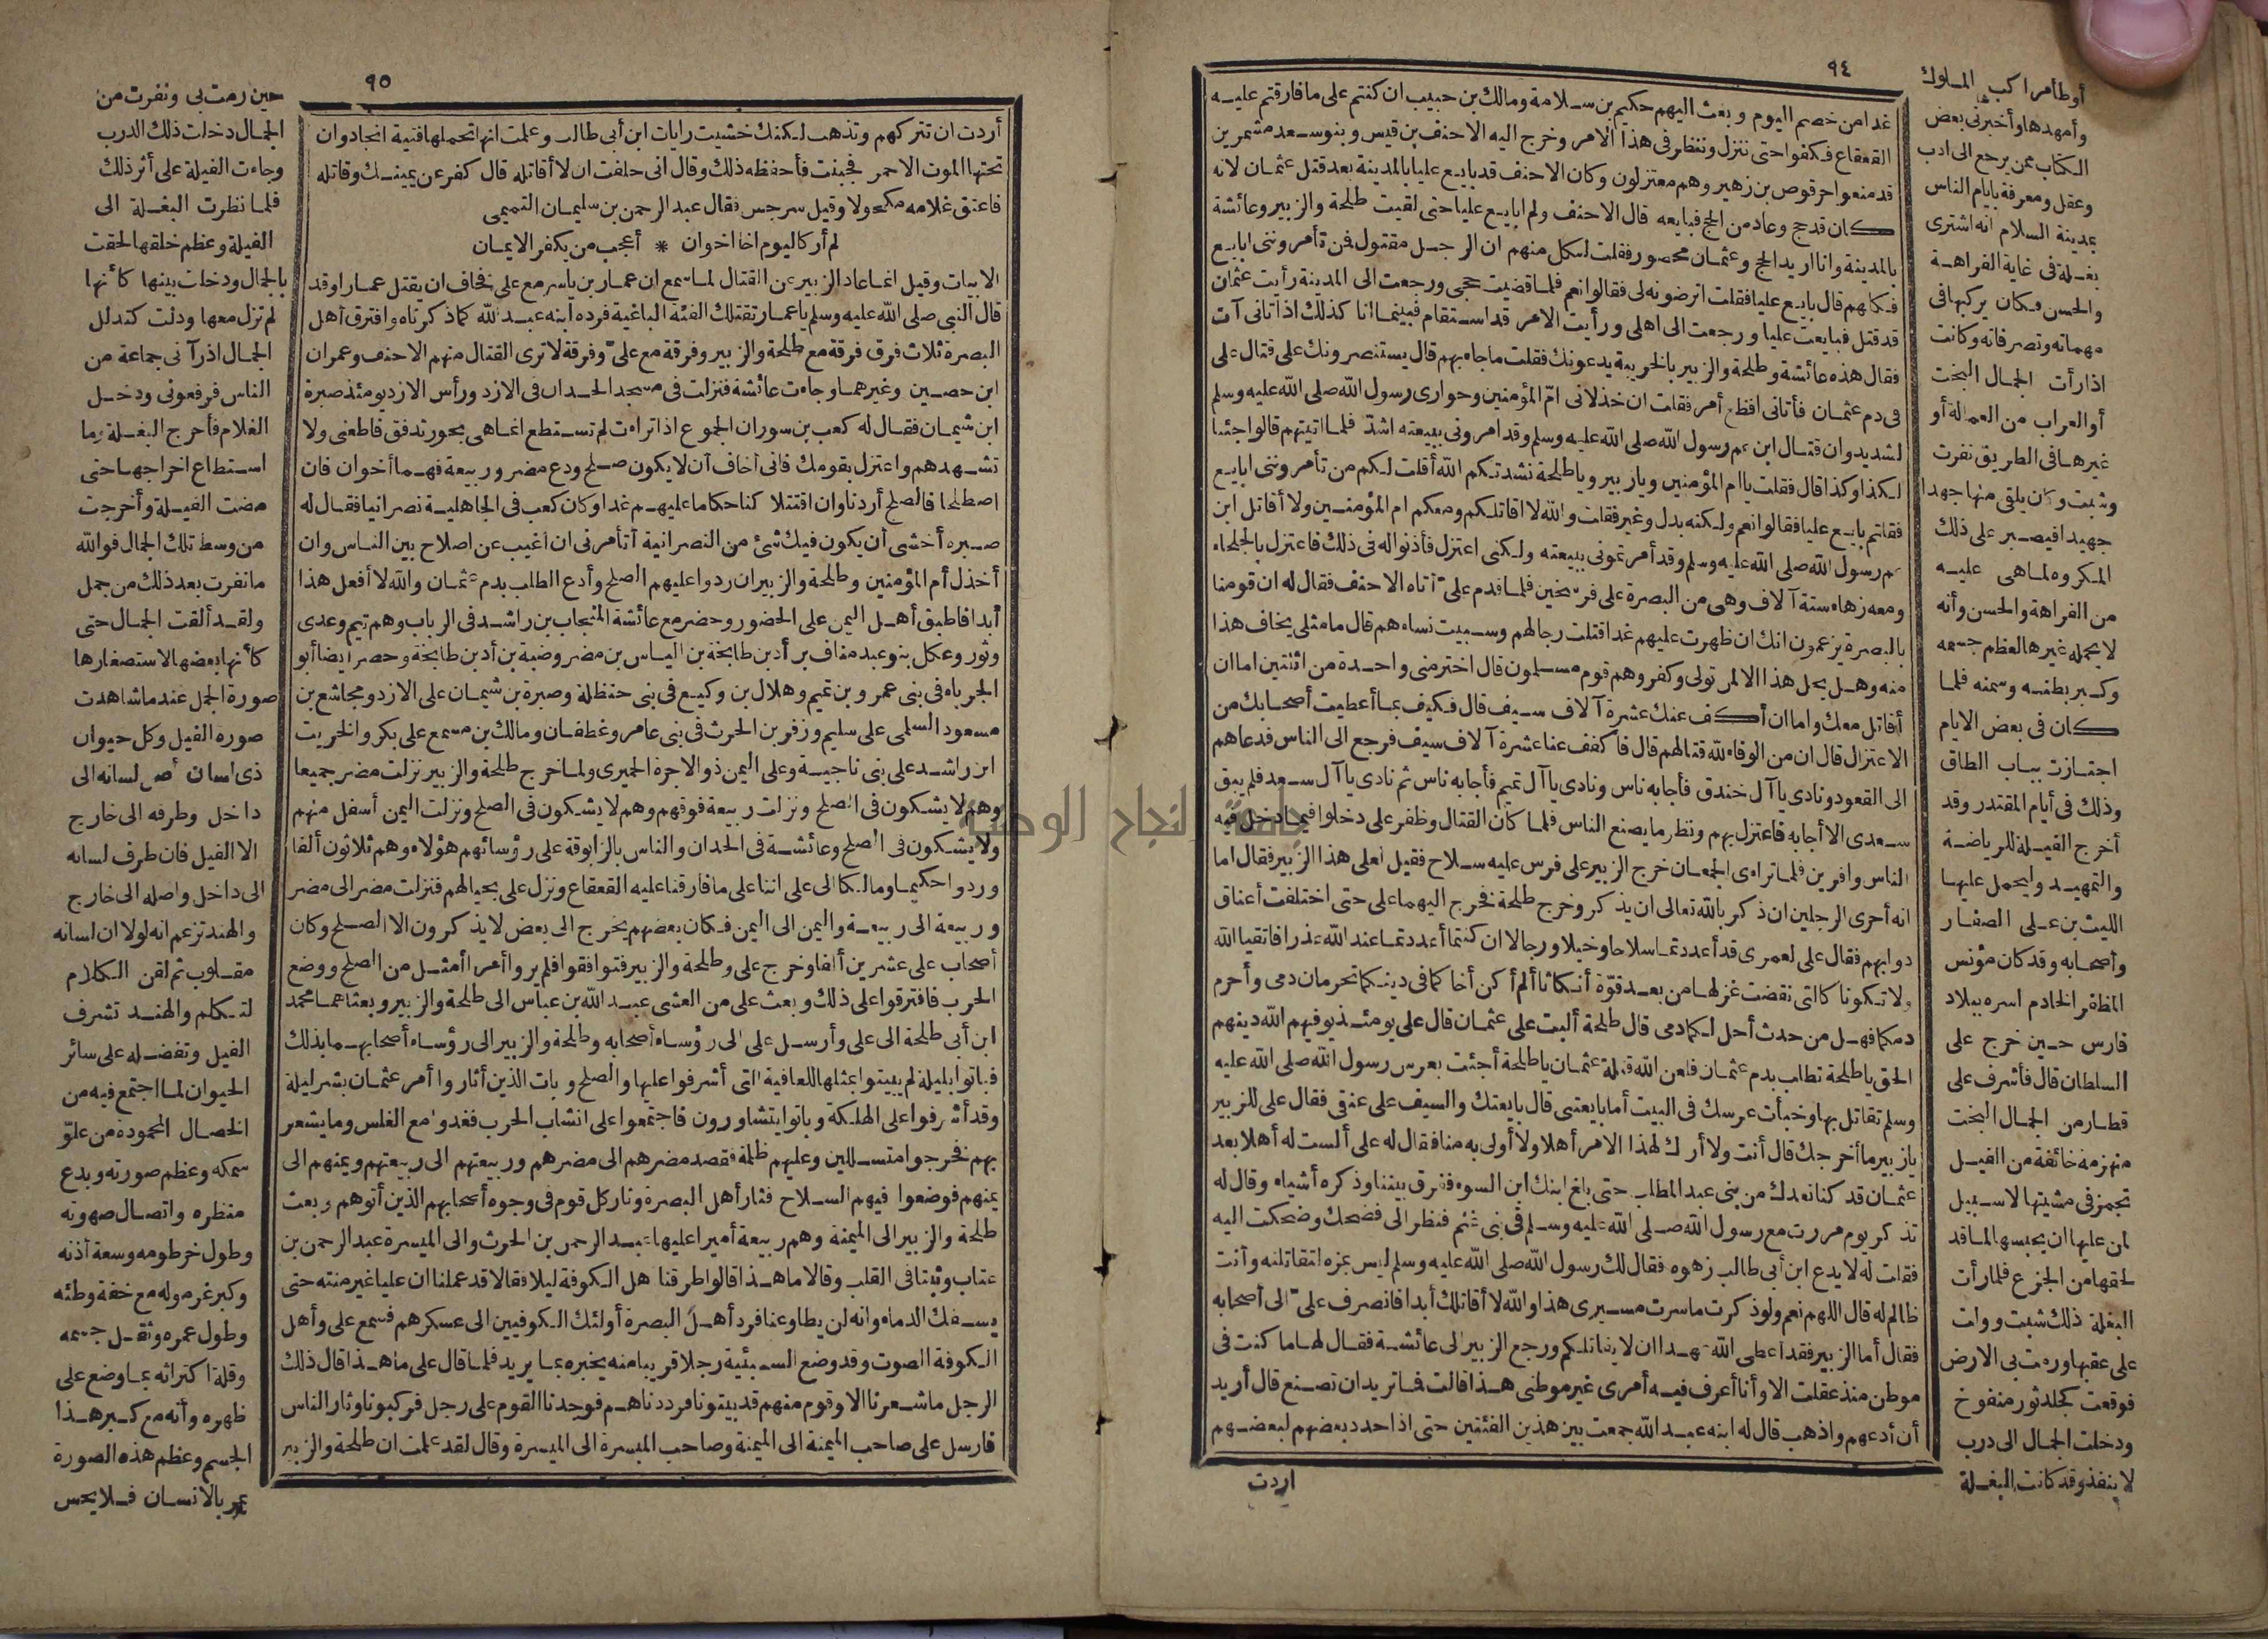 ٩٤
غدا من خصم اليوم وبعث اليهم حكيم بن سلامة ومالك بن حبيب ان كنتم على ما فارقتم عليه
القعقاع فكفوا حتى ننزل وننظر فى هذا الامر وخرج اليه الاحنف بن قيس وبنو سعد مشمرين
قد منعوا حرقوص بن زهير وهم معتزلون وكان الاحنف قد بايع عليا بالمدينة بعد قتل عثمان لانه
كان قد حج وعاد من الحج فبايعه قال الاحنف ولم ابايع عليا حتى لقيت طلحة والزبير وعائشة
بالمدينة وانا اريد الحج وعثمان محصور فقلت لكل منهم ان الرجل مقتول فمن تأمروننى ابايع
فكلهم قال بايع عليا فقلت اترضونه لى فقالوا نعم فلما قضيت حجى ورجعت الى المدينة رأيت عثمان
قد قتل فبايعت عليا ورجعت الى اهلى ورأيت الامر قد استقام فبينما انا كذلك اذ اتانى آت
فقال هذه عائشة وطلحة والزبير بالخريبة يدعونك فقلت ما جاء بهم قال يستنصرونك على قتال على
فى دم عثمان فأتانى افظع أمر فقلت ان خذلانى امّ المؤمنين وحوارى رسول الله صلى الله عليه وسلم
لشديد وان قتال ابن عم رسول الله صلى الله عليه وسلم وقد امرونى ببيعته اشدّ فلما اتيتهم قالوا جئنا
لكذا وكذا قال فقلت يا ام المؤمنين ويا زبير ويا طلحة نشدتكم الله أقلت لكم من تأمروننى ابايع
فقلتم بايع عليا فقالوا نعم ولكنه بدل وغير فقلت والله لا اقاتلكم ومعكم ام المؤمنين ولا أقاتل ابن
عم رسول الله صلى الله عليه وسلم وقد أمرتمونى ببيعته ولكنى اعتزل فأذنوا له فى ذلك فاعتزل بالجلحاء
ومعه زهاء ستة آلاف وهى من البصرة على فرسخين فلما قدم علىّ أتاه الاحنف فقال له ان قومنا
بالبصرة يزعمون انك ان ظهرت عليهم غدا قتلت رجالهم وسبيت نساءهم قال ما مثلى يخاف هذا
منه وهل يحل هذا الا لمن تولى وكفر وهم قوم مسلمون قال اختر منى واحدة من اثنتين اما ان
أقاتل معك واما ان أكف عنك عشرة آلاف سيف قال فكيف بما أعطيت أصحابك من
الاعتزال قال ان من الوفاء لله قتالهم قال فاكفف عنا عشرة آلاف سيف فرجع الى الناس فدعاهم
الى القعود ونادى يا آل خندق فأجابه ناس ونادى يا آل تميم فأجابه ناس ثم نادى يا آل سعد فلم يبق
سعدى الا أجابه فاعتزل بهم ونظر ما يصنع الناس فلما كان القتال وظفر على دخلوا فيما دخل فيه
الناس وافرين فلما تراءى الجمعان خرج الزبير على فرس عليه سلاح فقيل لعلى هذا الزبير فقال اما
انه أحرى الرجلين ان ذكر بالله تعالى ان يذكر وخرج طلحة فخرج اليهما على حتى اختلفت أعناق
دوابهم فقال على لعمرى قد أعددتما سلاحا وخيلا ورجالا ان كنتما أعددتما عند الله عذرا فاتقيا الله
ولا تكونا كالتى نقضت غزلها من بعد قوّة أنكاثا ألم أكن أخا كما فى دينكما تحرمان دمى وأحرم
دمكما فهل من حدث أحل لكما دمى قال طلحة ألبت على عثمان قال على يومئذ يوفيهم الله دينهم
الحق يا طلحة تطلب بدم عثمان فلعن الله قتلة عثمان يا طلحة أجئت بعرس رسول الله صلى الله عليه
وسلم تقاتل بها وخبأت عرسك فى البيت أما بايعتنى قال بايعتك والسيف على عنقى فقال على للزبير
يا زبير ما أخرجك قال أنت ولا أراك لهذا الامر أهلا ولا أولى به منا فقال له على ألست له أهلا بعد
عثمان قد كنا نعدك من بنى عبد المطلب حتى بلغ ابنك ابن السوء ففرق بيننا وذكره أشياء وقال له
تذكر يوم مررت مع رسول الله صلى الله عليه وسلم فى بنى غنم فنظر الى فضحك وضحكت اليه
فقلت له لا يدع ابن أبى طالب زهوه فقال لك رسول الله صلى الله عليه وسلم ليس بمزه لتقاتلنه وأنت
ظالم له قال اللهم نعم ولو ذكرت ما سرت مسيرى هذا والله لا أقاتلك أبدا فانصرف علىّ الى أصحابه
فقال أما الزبير فقد أعطى الله عهدا ان لا يقاتلكم ورجع الزبير الى عائشة فقال لها ما كنت فى
موطن منذ عقلت الا وأنا أعرف فيه أمرى غير موطنى هذا قالت فما تريد ان تصنع قال أريد
أن أدعهم واذهب قال له ابنه عبد الله جمعت بين هذين الفئتين حتى اذا حدد بعضهم لبعضهم
اردت
أو طأ مراكب الملوك
وأمهدها وأخبرنى بعض
الكتاب عمن يرجع الى ادب
وعقل ومعرفة بايام الناس
بمدينة السلام انه اشترى
بغلة فى غاية الفراهة
والحسن فكان يركبها فى
مهماته وتصرفاته وكانت
اذا رأت الجمال البخت
أو العراب من العمالة أو
غيرها فى الطريق نفرت
وشبت وكان يلقى منها جهدا
جهيدا فيصبر على ذلك
المكروه لما هى عليه
من الفراهة والحسن وأنه
لا يحمله غيرها لعظم جسمه
وكبر بطنه وسمنه فلما
كان فى بعض الايام
اجتازت بباب الطاق
وذلك فى أيام المقتدر وقد
أخرج الفيلة للرياضة
والتمهيد وليحمل عليها
الليث بن على الصفار
وأصحابه وقد كان مؤنس
المظفر الخادم اسره ببلاد
فارس حين خرج على
السلطان قال فأشرف على
قطار من الجمال البخت
منهزمة خائفة من الفيل
تجمز فى مشيتها لا سبيل
لمن عليها ان يحبسها لما قد
لحقها من الجزع فلما رأت
البغلة ذلك شبت وولت
على عقبها ورمت بى الارض
فوقعت كجلد ثور منفوخ
ودخلت الجمال الى درب
لا ينفذ وقد كانت البغلة
٩٥
أردت ان تتركهم وتذهب لكنك خشيت رايات ابن أبى طالب وعلمت انها تحملها فتية انجاد وان
تحتها الموت الاحمر فجبنت فأحفظه ذلك وقال انى حلفت ان لا أقاتله قال كفر عن يمينك وقاتله
فاعتق غلامه مكحولا وقيل سرجس فقال عبد الرحمن بن سليمان التميمى
لم أر كاليوم اخا اخوان * أعجب من يكفر الايمان
الابيات وقيل انما عاد الزبير عن القتال لما سمع ان عمار بن ياسر مع على فخاف ان يقتل عمارا وقد
قال النبى صلى الله عليه وسلم يا عمار تقتلك الفئة الباغية فرده ابنه عبد الله كما ذكرناه وافترق أهل
البصرة ثلاث فرق فرقة مع طلحة والزبير وفرقة مع علىّ وفرقة لا ترى القتال منهم الاحنف وعمران
ابن حصين وغيرهما وجاءت عائشة فنزلت فى مسجد الحدان فى الازد ورأس الازد يومئذ صبرة
ابن شيمان فقال له كعب بن سور ان الجموع اذا تراءت لم تستطع انما هى بحور تدفق فاطعنى ولا
تشهدهم واعتزل بقومك فانى أخاف أن لا يكون صلح ودع مضر وربيعة فهما أخوان فان
اصطلحا فالصلح أردنا وان اقتتلا كنا حكاما عليهم غدا وكان كعب فى الجاهلية نصرانيا فقال له
صبره أخشى أن يكون فيك شئ من النصرانية أتأمرنى ان أغيب عن اصلاح بين الناس وان
أخذل أم المؤمنين وطلحة والزبير ان ردوا عليهم الصلح وأدع الطلب بدم عثمان والله لا أفعل هذا
أبدا فاطبق أهل اليمن على الحضور وحضر مع عائشة المنجاب بن راشد فى الرباب وهم تيم وعدى
وثور وعكل بنو عبد مناف بن أد بن طابخة بن الياس بن مضر وضبة بن أد بن طابخة وحضر أيضا أبو
الجرباء فى بنى عمرو بن تميم وهلال بن وكيع فى بنى حنظلة وصبرة بن شيمان على الازد ومجاشع بن
مسعود السلمى على سليم وزفر بن الحرث فى بنى عامر وغطفان ومالك بن مسمع على بكر والخريت
ابن راشد على بنى ناجية وعلى اليمن ذو الاجرة الحميرى ولما خرج طلحة والزبير نزلت مضر جميعا
وهم لا يشكون فى الصلح ونزلت ربيعة فوقهم وهم لا يشكون فى الصلح ونزلت اليمن أسفل منهم
ولا يشكون فى الصلح وعائشة فى الحدان والناس بالزابوقة على رؤسائهم هؤلاء وهم ثلاثون ألفا
وردوا حكيما ومالكا الى على اننا على ما فارقنا عليه القعقاع ونزل على بحيالهم فنزلت مضر الى مضر
وربيعة الى ربيعة واليمن الى اليمن فكان بعضهم يخرج الى بعض لا يذكرون الا الصلح وكان
أصحاب على عشرين ألفا وخرج على وطلحة والزبير فتوافقوا فلم يروا أمرا أمثل من الصلح ووضع
الحرب فافترقوا على ذلك وبعث على من العشى عبد الله بن عباس الى طلحة والزبير وبعثا هما محمد
ابن أبى طلحة الى على وأرسل على الى رؤساء أصحابه وطلحة والزبير الى رؤساء أصحابهما بذلك
فباتوا بليلة لم يبيتوا بمثلها للعافية التى أشرفوا عليها والصلح وبات الذين أثاروا أمر عثمان بشر ليلة
وقد أشرفوا على الهلكة وباتوا يتشاورون فاجتمعوا على انشاب الحرب فغدوا مع الغلس وما يشعر
بهم فخرجوا متسللين وعليهم ظلمة فقصد مضرهم الى مضرهم وربيعتهم الى ربيعتهم ويمنهم الى
يمنهم فوضعوا فيهم السلاح فثار أهل البصرة وثار كل قوم فى وجوه أصحابهم الذين أتوهم وبعث
طلحة والزبير الى الميمنة وهم ربيعة أميرا عليها عبد الرحمن بن الحرث والى الميسرة عبد الرحمن بن
عتاب وثبتا فى القلب وقالا ما هذا قالوا طرقنا اهل الكوفة ليلا فقالا قد علمنا ان عليا غير منته حتى
يسفك الدماء وانه لن يطاوعنا فرد أهل البصرة أولئك الكوفيين الى عسكرهم فسمع على وأهل
الكوفة الصوت وقد وضع السبئية رجلا قريبا منه يخبره بما يريد فلما قال على ما هذا قال ذلك
الرجل ما شعرنا الا وقوم منهم قد بيتونا فرددناهم فوجدنا القوم على رجل فركبونا وثار الناس
فارسل على صاحب الميمنة الى الميمنة وصاحب الميسرة الى الميسرة وقال لقد علمت ان طلحة والزبير
حين رمت بى ونفرت من
الجمال دخلت ذلك الدرب
وجاءت الفيلة على أثر ذلك
فلما نظرت البغلة الى
الفيلة وعظم خلقها لحقت
بالجمال ودخلت بينها كأنها
لم تزل معها ودلت كتدلل
الجمال اذ رآنى جماعة من
الناس فرفعونى ودخل
الغلام فأخرج البغلة وما
استطاع اخراجها حتى
مضت الفيلة وأخرجت
من وسط تلك الجمال فوالله
ما نفرت بعد ذلك من جمل
ولقد ألقت الجمال حتى
كأنها بعضها لاستصغارها
صورة الجمل عند ما شاهدت
صورة الفيل وكل حيوان
ذى لسان أصل لسانه الى
داخل وطرفه الى خارج
الا الفيل فان طرف لسانه
الى داخل واصله الى خارج
والهند تزعم انه لولا ان لسانه
مقلوب ثم لقن الكلام
لتكلم والهند تشرف
الفيل وتفضله على سائر
الحيوان لما اجتمع فيه من
الخصال المحمودة من علوّ
سمكه وعظم صورته وبدع
منظره واتصال صهوته
وطول خرطومه وسعة أذنه
وكبر غرموله مع خفة وطئه
وطول عمره وثقل جسمه
وقلة اكتراثه بما وضع على
ظهره وأنه مع كبر هذا
الجسم وعظم هذه الصورة
يمر بالانسان فلا يحس
جامعة النجاح الوطنية